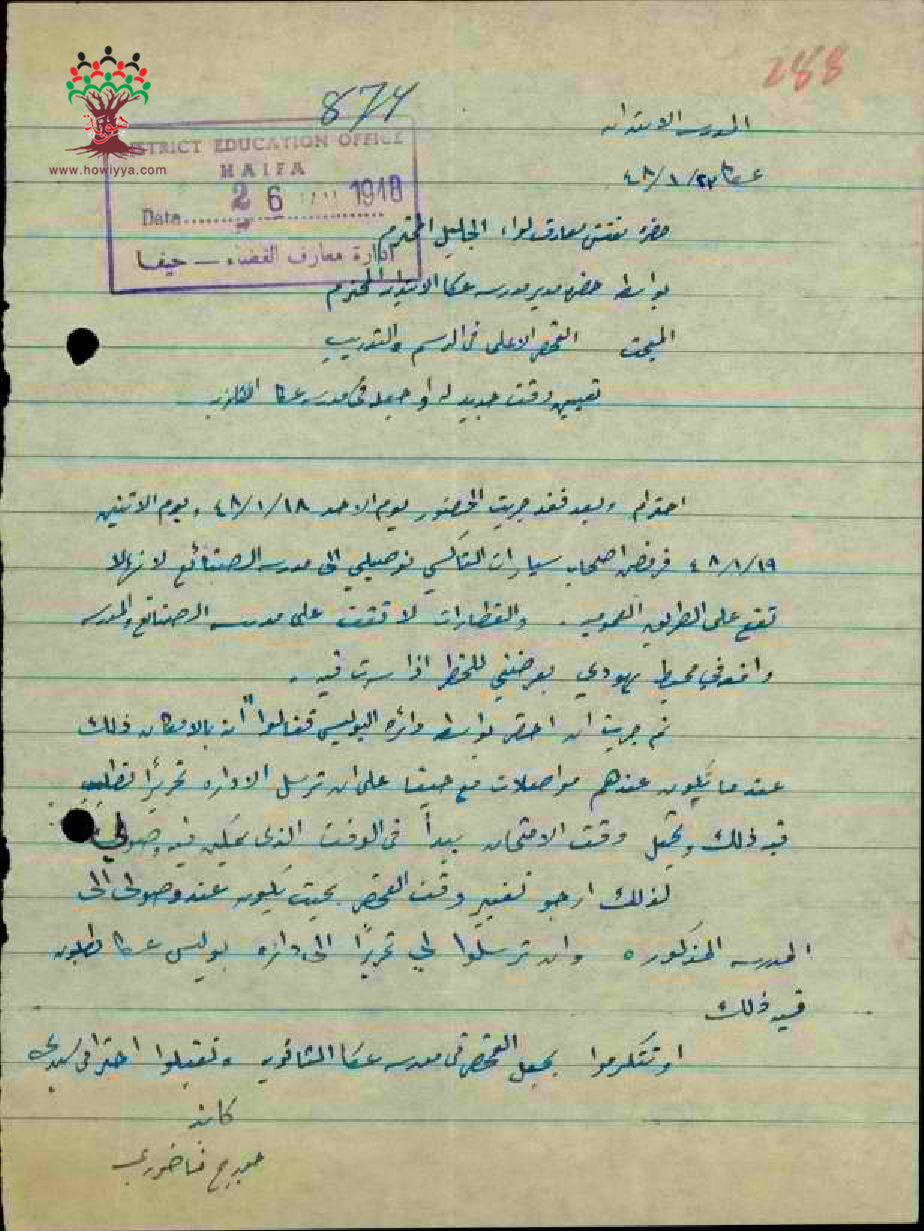 288
874
هوية
www.howiyya.com
DISTRICT EDUCATION OFFICE
HAIFA
Date 26 JAN 1948
ادارة معارف القضاء — حيفا
المدرسه الابتدائيه
عكا ٤٨/١/٢٣
حضرة مفتش معارف لواء الجليل المحترم
بواسطه حضرة مدير مدرسه عكا الابتدائيه المحترم
المبحث الفحص الاعلى في الرسم والتدريب
تعيين وقت جديد له او جعله في مدرسه عكا الثانويه
احترام وبعد فقد جربت الحضور يوم الاحد ٤٨/١/١٨ ويوم الاثنين
٤٨/١/١٩ فرفض اصحاب سيارات التاكسي توصيلي الى مدرسه الصنائع لانها لا
تقع على الطريق العموميه. والقطارات لا تقف على مدرسه الصنائع والمدرسه
واقعه في محيط يهودي يعرضني للخطر اذا سرت فيه.
ثم جربت ان احضر بواسطه دائرة البوليس فقالوا "ان بالامكان ذلك
عندما يكون عندهم مواصلات مع حيفا على ان ترسل الاداره تحريرًا تطلب
فيه ذلك وتجعل وقت الامتحان يبدأ في الوقت الذي يمكن فيه وصولي"
لذلك ارجو تغيير وقت الفحص بحيث يكون عند وصولي الى
المدرسه المذكوره وان ترسلوا لي تحريرًا الى دائرة بوليس عكا تطلبون
فيه ذلك
او تتكرموا بجعل الفحص في مدرسه عكا الثانويه وتقبلوا احترامي سيدي
كاتبه
جورج فاخوري